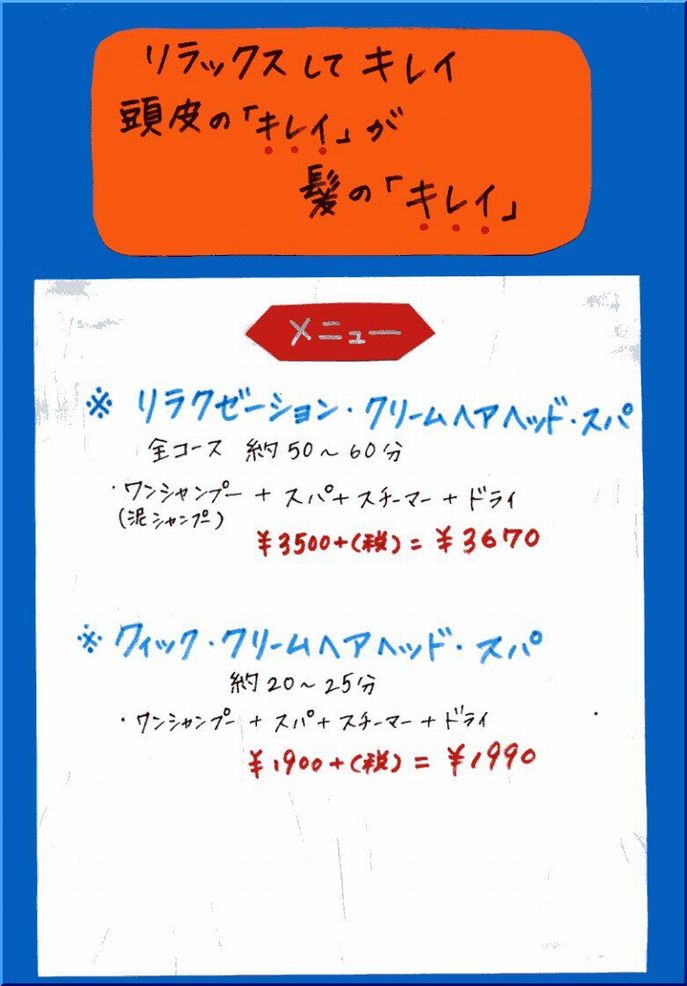 リラックスしてキレイ
頭皮の「キレイ」が
髪の「キレイ」
メニュー
※ リラクゼーション・クリームヘアヘッド・スパ
全コース 約50～60分
・ワンシャンプー + スパ + スチーマー + ドライ
(泥シャンプー)
¥3500+(税) = ¥3670
※ クィック・クリームヘアヘッド・スパ
約20～25分
・ワンシャンプー + スパ + スチーマー + ドライ
¥1900+(税) = ¥1990